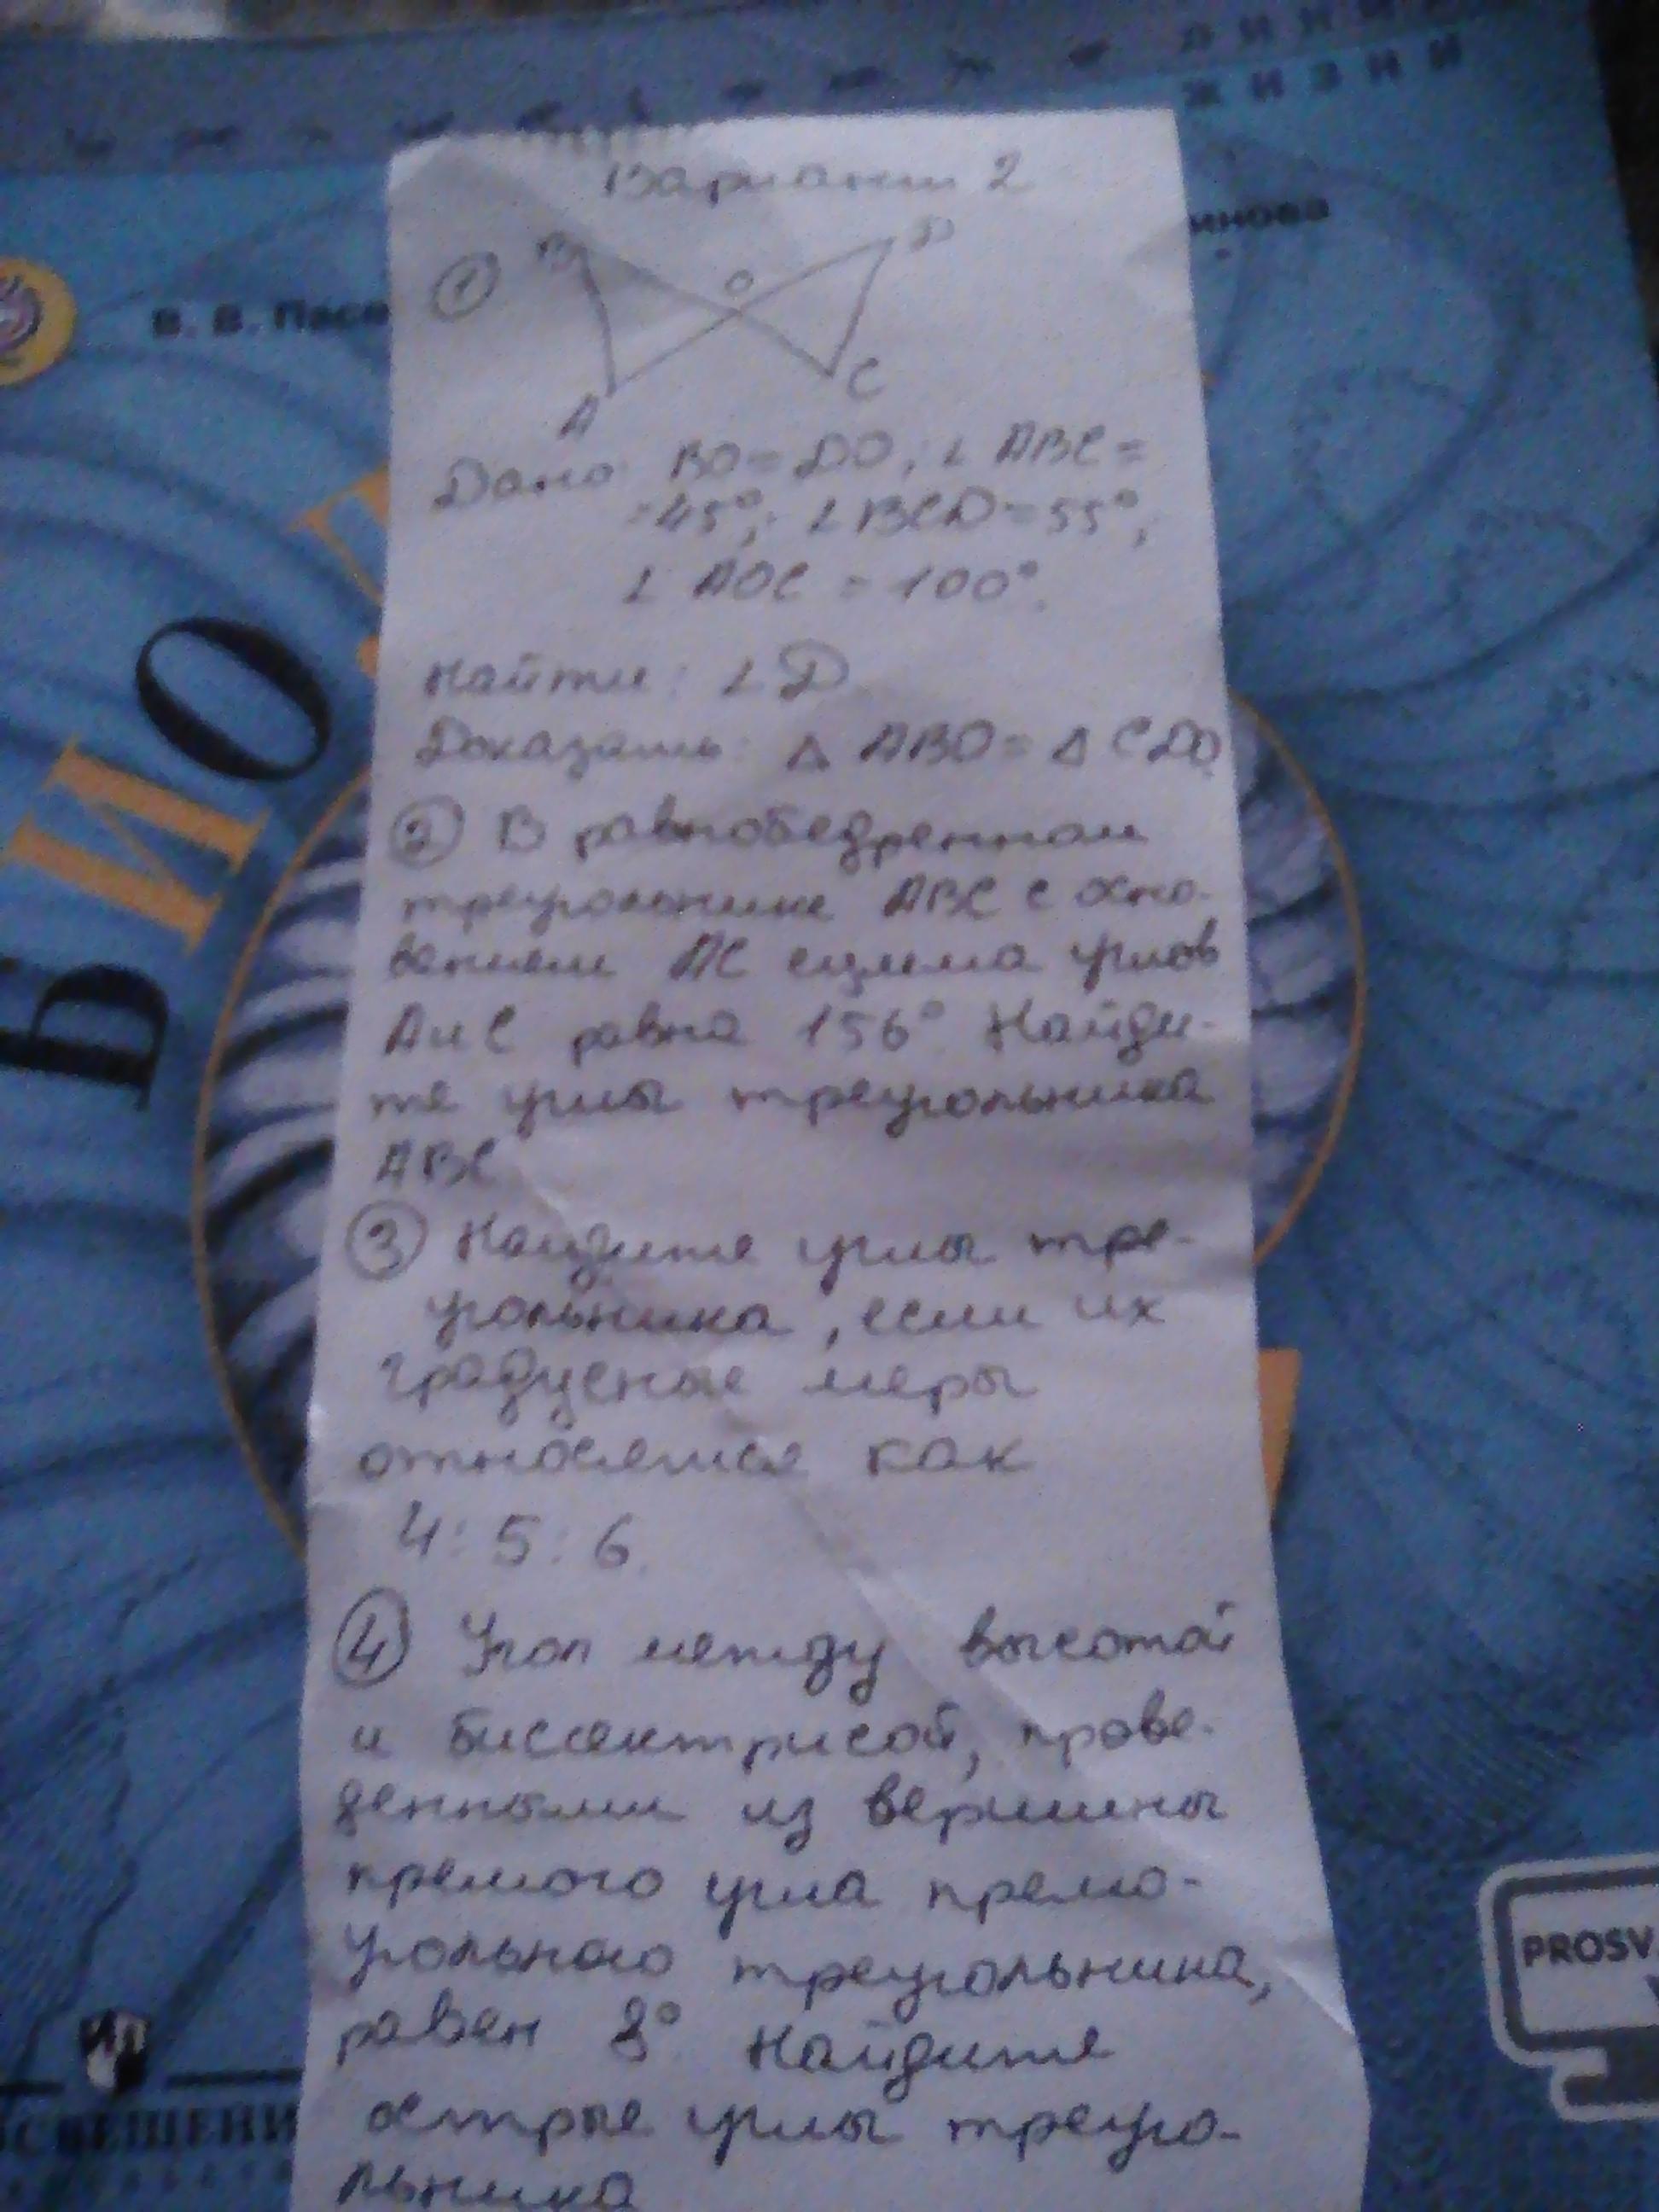 ЛИНИЯ
ЖИЗНИ
В. В. Пасе
инова
БИОЛ
Вариант 2
① B O D
A C
Дано: BO=DO; ∠ABC=
=45°; ∠BCD=55°;
∠AOC=100°.
Найти: ∠D
Доказать: △ABO=△CDO
② В равнобедренном
треугольнике ABC с осно-
ванием AC сумма углов
A и C равна 156°. Найди-
те углы треугольника
ABC
③ Найдите углы тре-
угольника, если их
градусные меры
относятся как
4:5:6.
④ Угол между высотой
и биссектрисой, прове-
денными из вершины
прямого угла прямо-
угольного треугольника,
равен 8° Найдите
острые углы треуго-
льника
ОСВЕЩЕНИ
PROSV